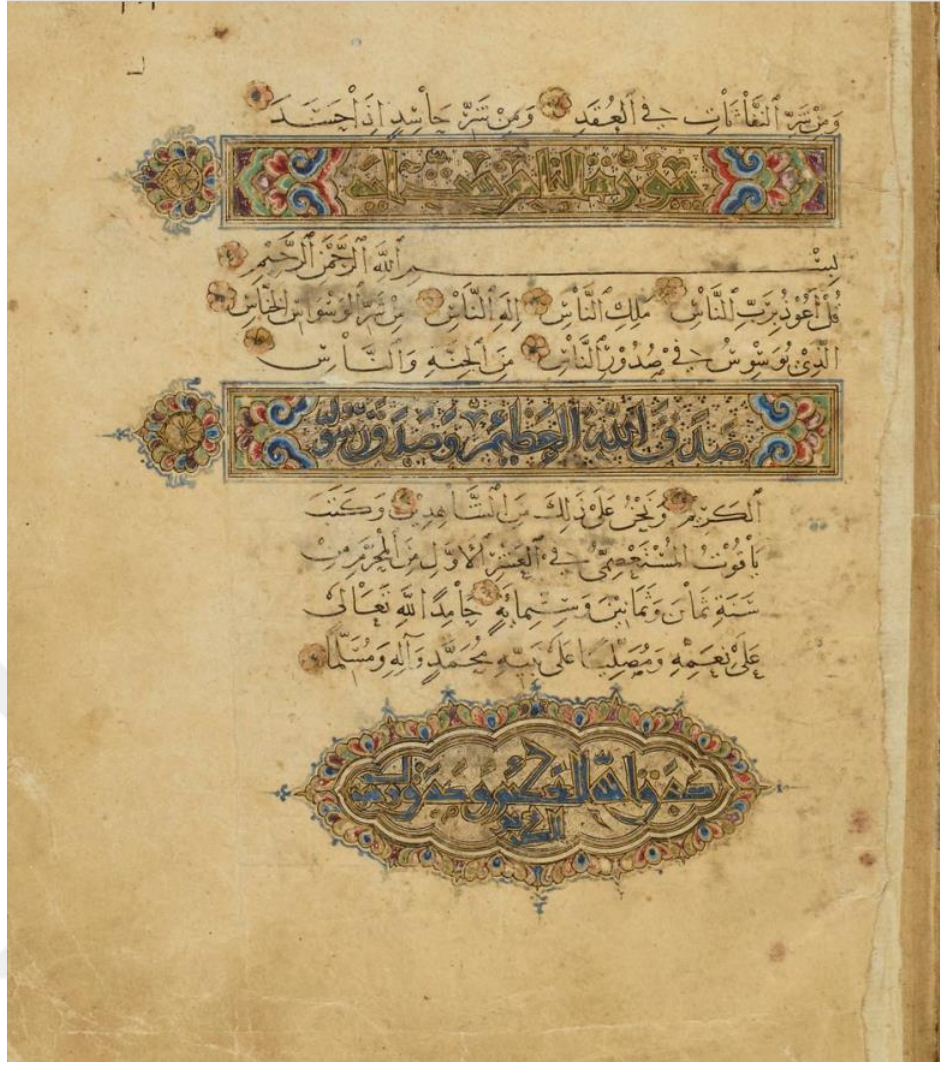 وَمِنْ شَرِّ النَّفَّاثَاتِ فِي الْعُقَدِ وَمِنْ شَرِّ حَاسِدٍ إِذَا حَسَدَ
سورة الناس ست آيات
بِسْمِ اللَّهِ الرَّحْمَٰنِ الرَّحِيمِ
قُلْ أَعُوذُ بِرَبِّ النَّاسِ مَلِكِ النَّاسِ إِلَهِ النَّاسِ مِنْ شَرِّ الْوَسْوَاسِ الْخَنَّاسِ
الَّذِي يُوَسْوِسُ فِي صُدُورِ النَّاسِ مِنَ الْجِنَّةِ وَالنَّاسِ
صَدَقَ اللَّهُ الْعَظِيمُ وَصَدَقَ رَسُولُهُ
الْكَرِيمُ وَنَحْنُ عَلَى ذَلِكَ مِنَ الشَّاهِدِينَ وَكَتَبَ
يَاقُوتُ الْمُسْتَعْصِمِيُّ فِي الْعَشْرِ الْأَوَّلِ مِنَ الْمُحَرَّمِ مِنْ
سَنَةِ ثَمَانٍ وَثَمَانِينَ وَسِتِّمِائَةٍ حَامِدًا لِلَّهِ تَعَالَى
عَلَى نِعَمِهِ وَمُصَلِّيًا عَلَى نَبِيِّهِ مُحَمَّدٍ وَآلِهِ وَمُسَلِّمًا
صدق الله العظيم وصدق رسوله
الكريم